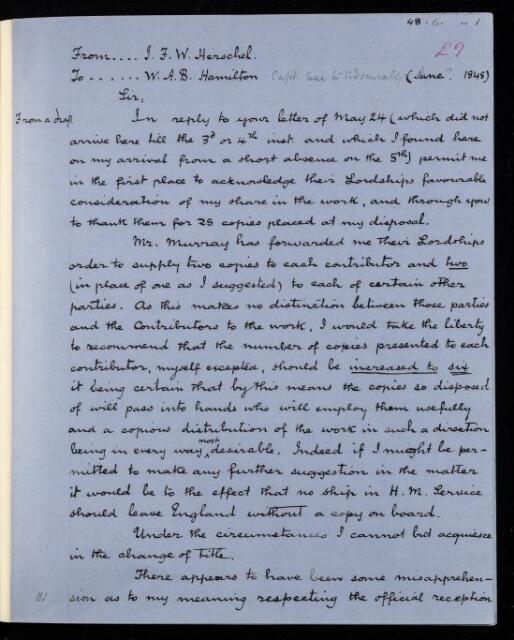 48
£9
From.... J. F. W. Herschel.
To ...... W. A. B. Hamilton Capt Sec to Admiralty (June? 1848)
Sir,
From a draft
In reply to your letter of May 24 (which did not
arrive here till the 3d or 4th inst and which I found here
on my arrival from a short absence on the 5th) permit me
in the first place to acknowledge their Lordships favourable
consideration of my share in the work, and through you
to thank them for 25 copies placed at my disposal.
Mr. Murray has forwarded me their Lordships
order to supply two copies to each contributor and two
(in place of one as I suggested) to each of certain other
parties. As this makes no distinction between those parties
and the Contributors to the work, I would take the liberty
to recommend that the number of copies presented to each
contributor, myself excepted, should be increased to six
it being certain that by this means the copies so disposed
of will pass into hands who will employ them usefully
and a copious distribution of the work in such a direction
being in every way most desirable. Indeed if I might be per-
mitted to make any further suggestion in the matter
it would be to the effect that no ship in H. M. Service
should leave England without a copy on board.
Under the circumstances I cannot but acquiesce
in the change of title.
There appears to have been some misapprehen-
sion as to my meaning respecting the official reception